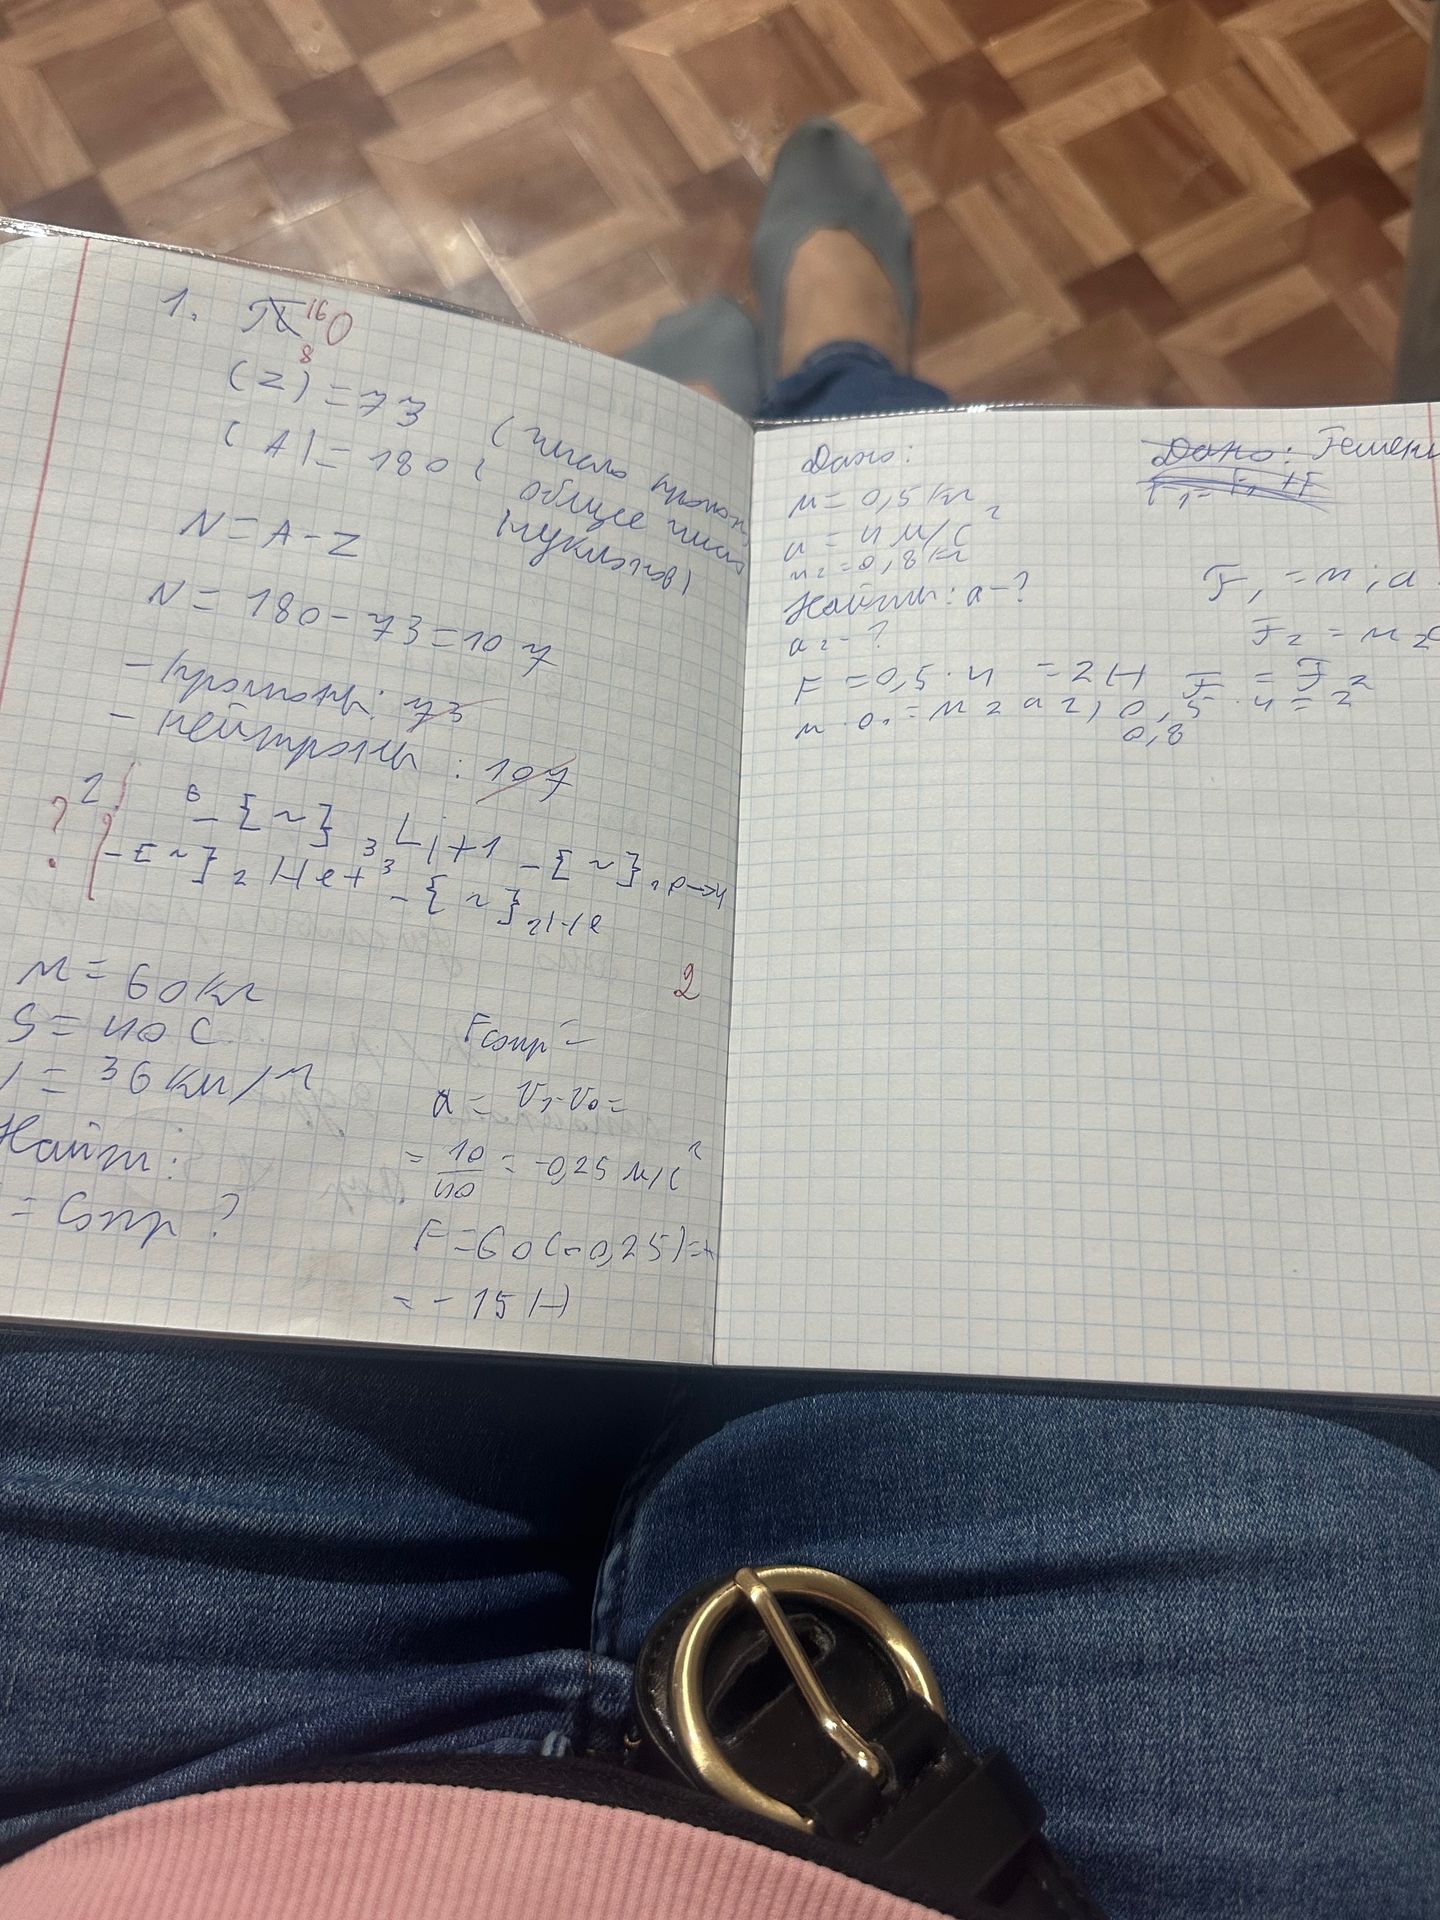 1. 16 8 O
(Z) = 73 (число
(A) = 180 ( общее число
нуклонов)
N = A - Z
N = 180 - 73 = 107
- протоны: 73
- нейтроны: 107
2.
? 6 -{~} 3 Li + 1 -{~}, p → 4
-{~} 2 He + 3 -{~} 2 He
2
m = 60 кг
S = 40 С
= 36 км/ч
Найти:
= Cопр ?
Fсопр =
a = V, - V0 =
= 10/40 = -0,25 м/с²
F = 60 (-0,25) =
= - 15 Н
Дано:
m = 0,5 кг
a = 4 м/с²
m2 = 0,8 кг
Найти: a - ?
a2 - ?
Дано:
F1 = m; a
F2 = m2
F = 0,5 · 4 = 2 Н F = F2
m · a. = m2 a2, 0,5 · 4 = 2
0,8